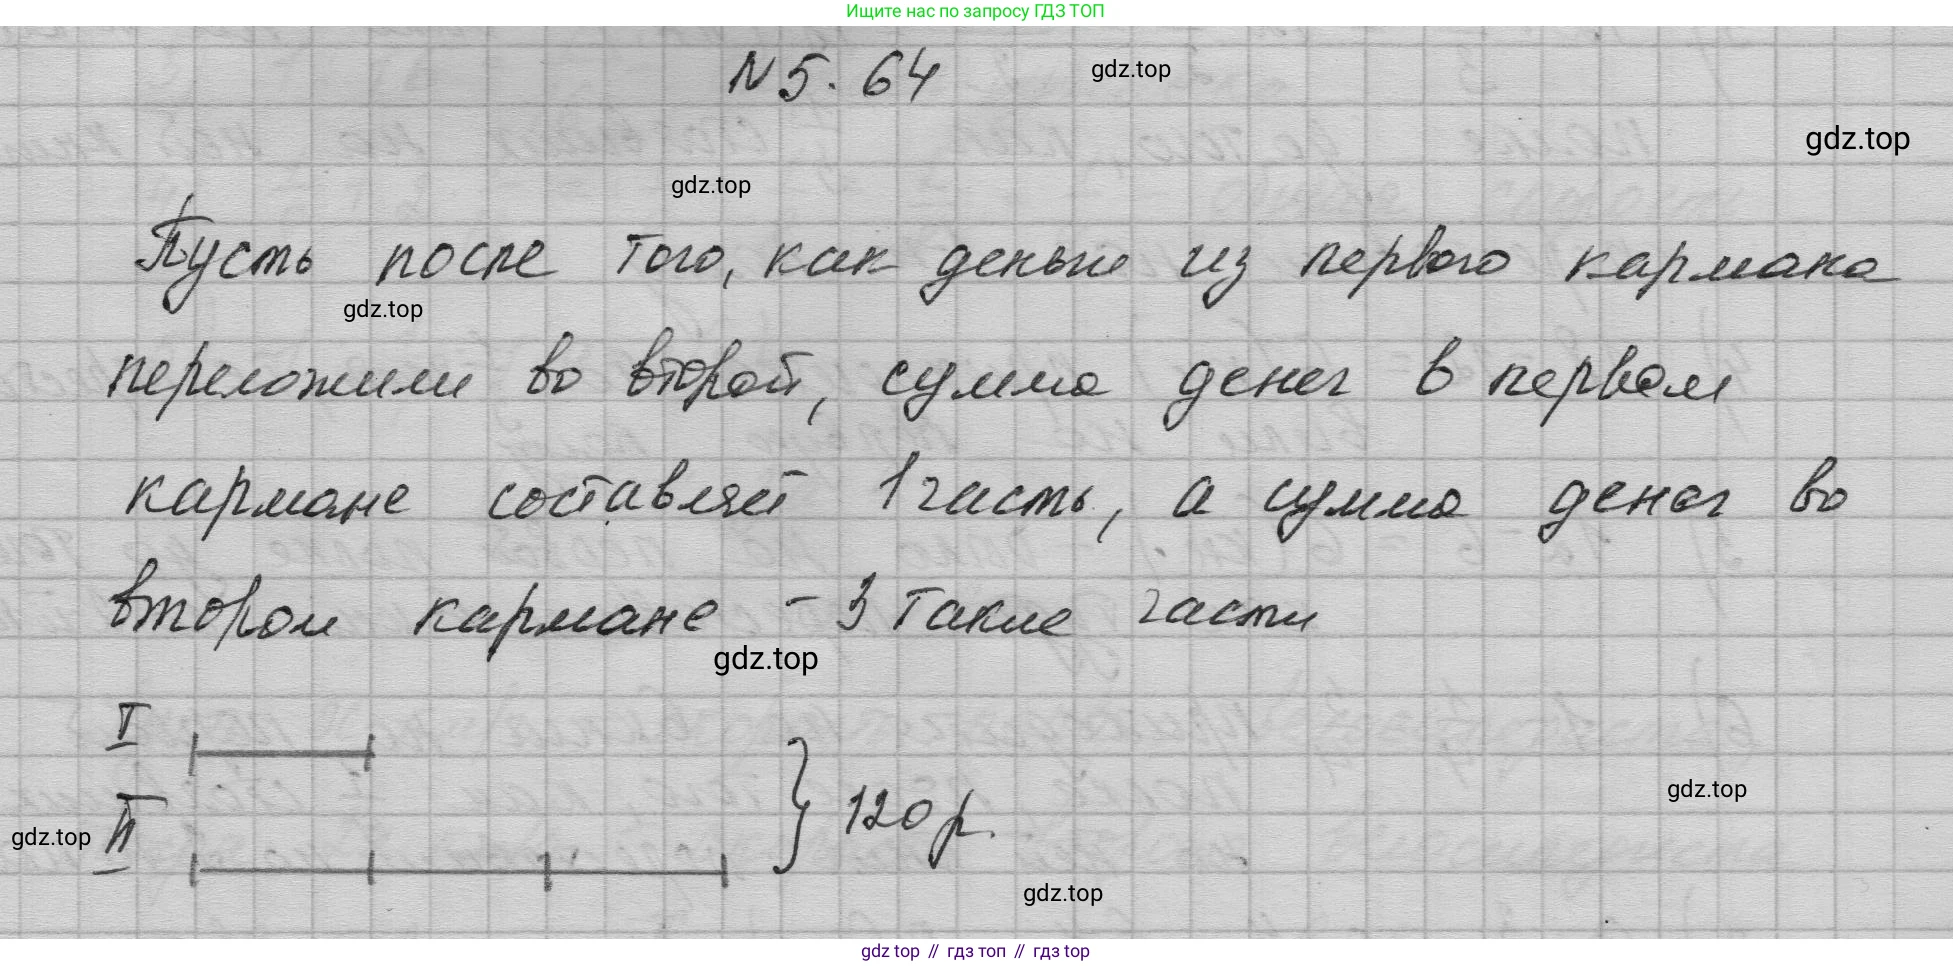 Ищите нас по запросу ГДЗ ТОП
N 5. 64
gdz.top
gdz.top
gdz.top
Пусть после того, как деньги из первого кармана
gdz.top
переложили во второй, сумма денег в первом
кармане составляет 1 часть, а сумма денег во
втором кармане - 3 такие части
gdz.top
I
II
120 р.
gdz.top
gdz.top
gdz.top
gdz top // гдз топ // гдз top